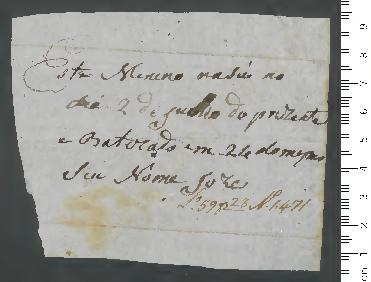 Este Menino nasceu no
dia 2 de Junho do prezente
e Batozado em 24 do mesmo
Seu Nome Joze
Lº 59 p 23 Nº 1471